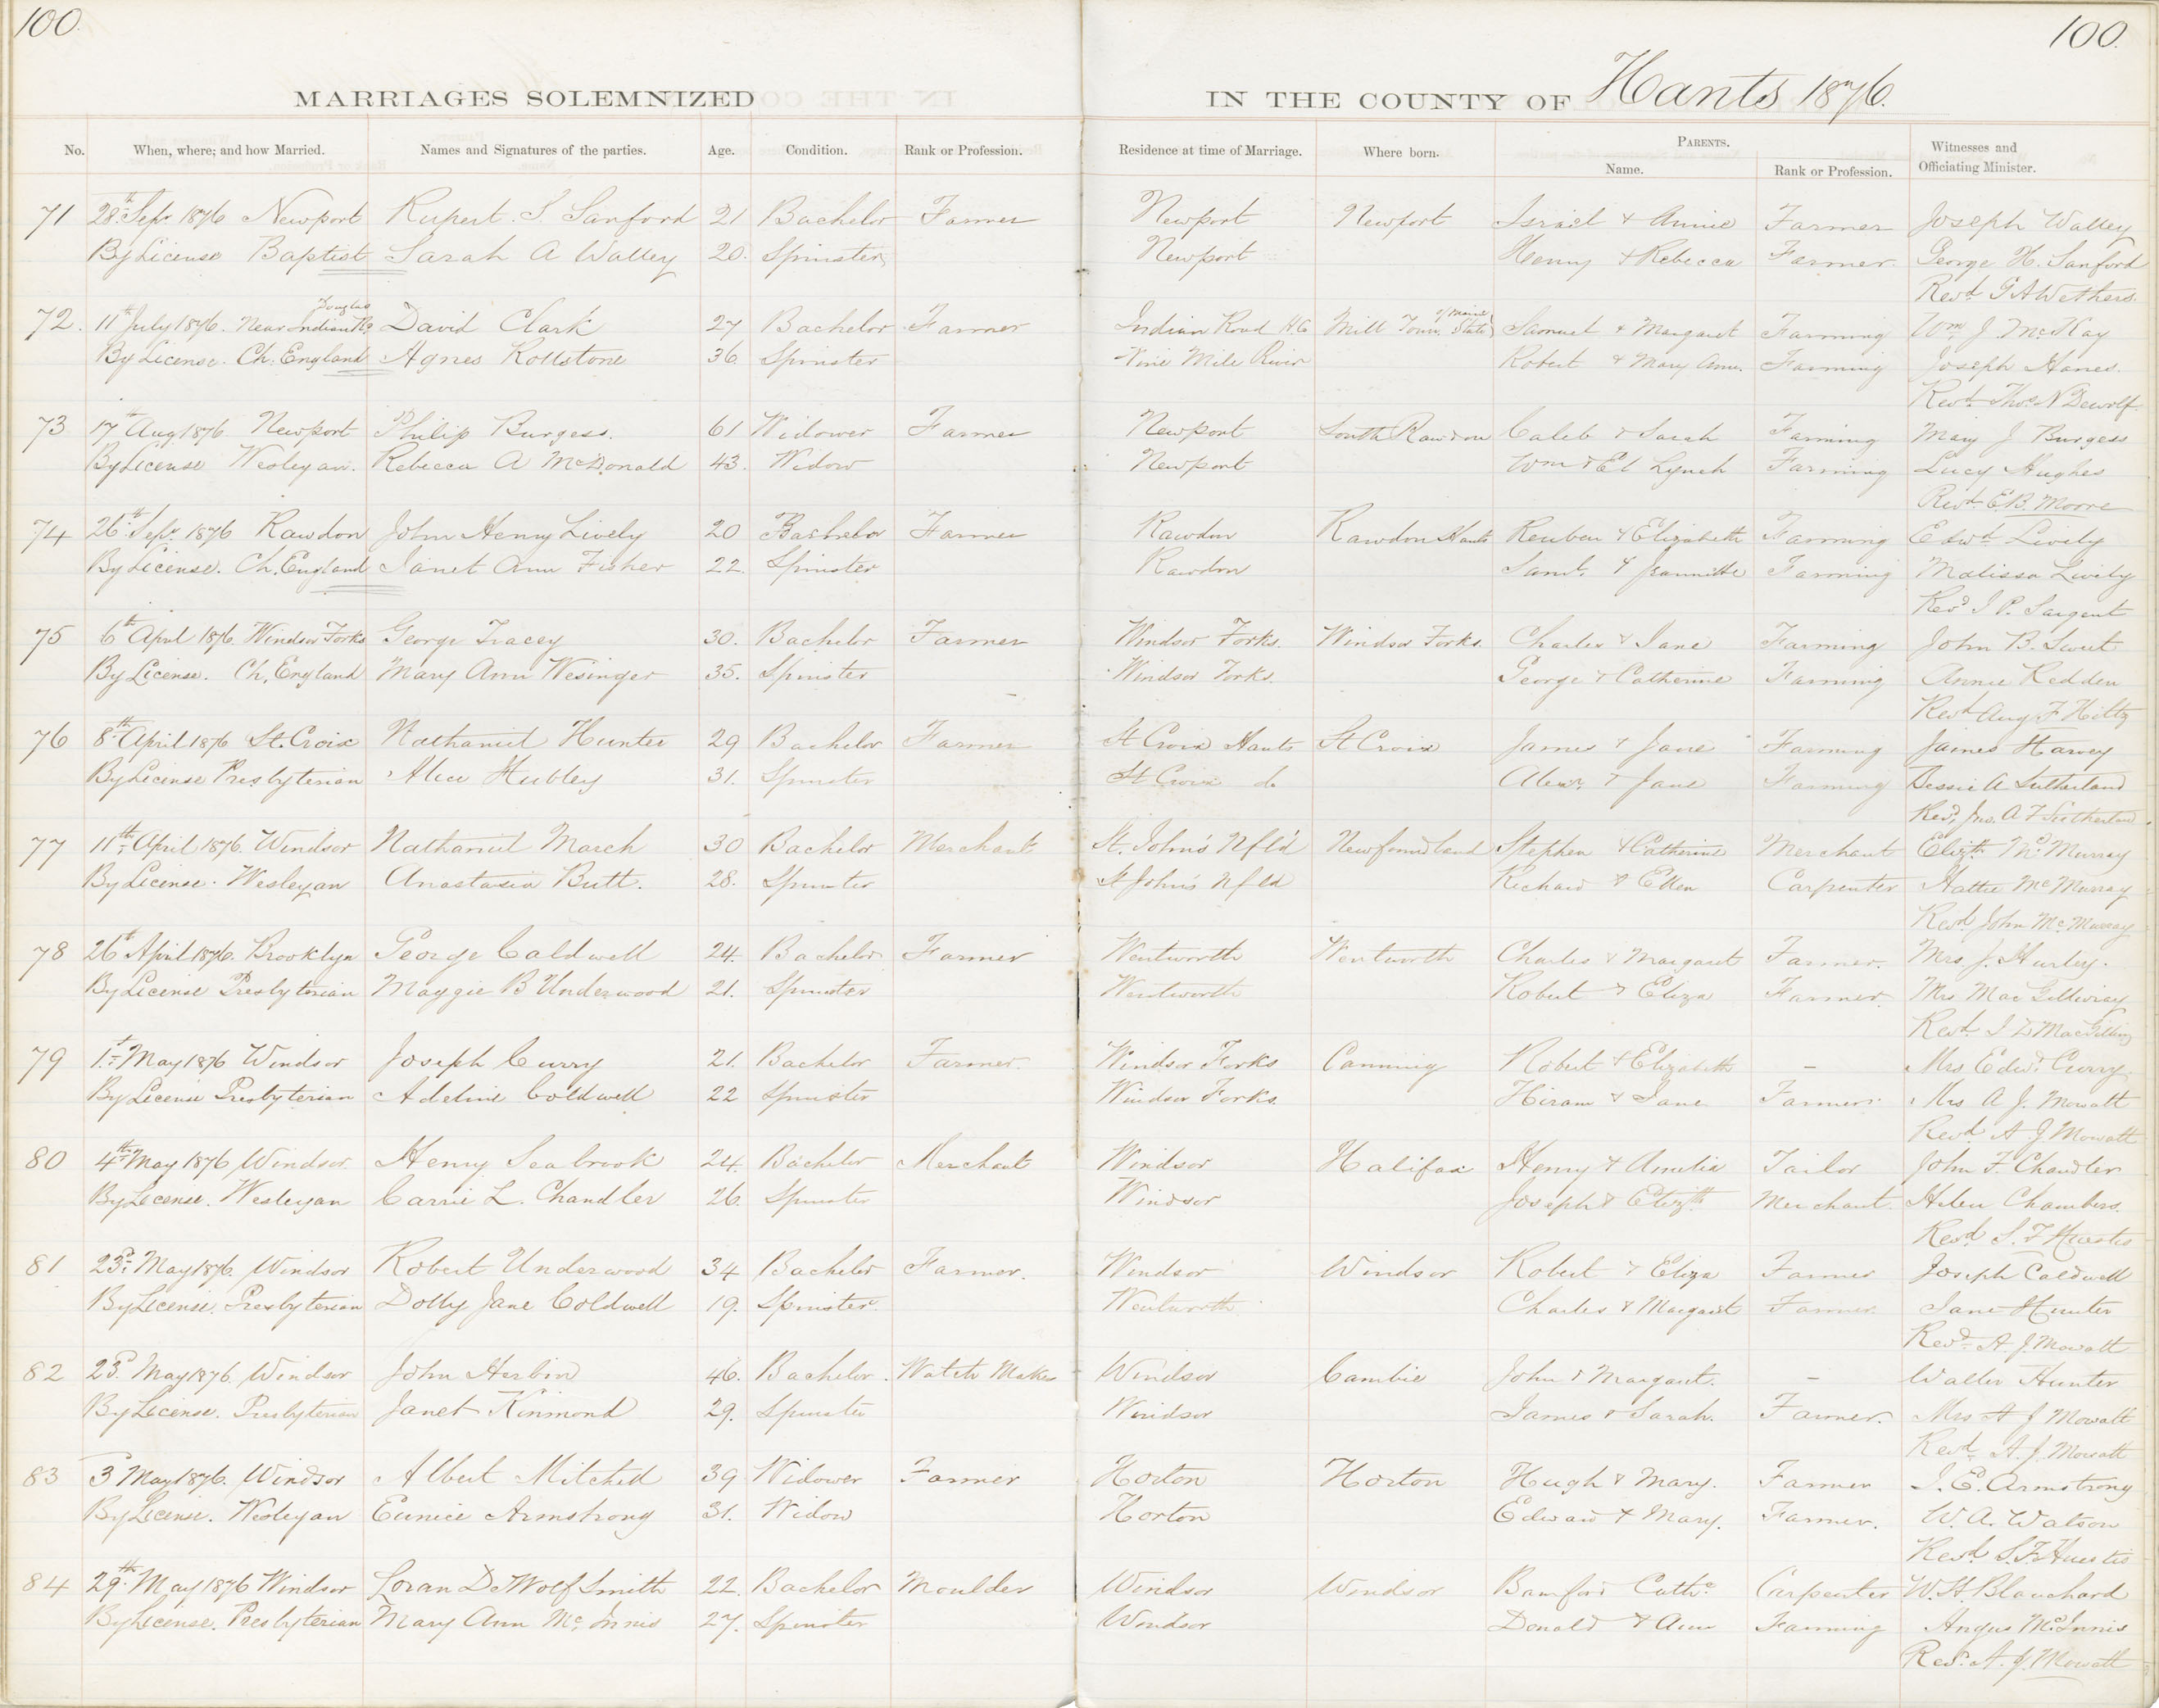 100. 100.
MARRIAGES SOLEMNIZED IN THE COUNTY OF Hants 1876.
No. When, where; and how Married. Names and Signatures of the parties. Age. Condition. Rank or Profession. Residence at time of Marriage. Where born. PARENTS. Name. Rank or Profession. Witnesses and Officiating Minister.
71 28th Sepr 1876 Newport Rupert S Sanford 21 Bachelor Farmer Newport Newport Israel & Annie Farmer Joseph Walley
By License Baptist Sarah A Walley 20. Spinster Newport Henry & Rebecca Farmer. George H. Sanford
Revd G A Wethers.
72. 11th July 1876. Near Douglas Indian Rd David Clark 27 Bachelor Farmer Indian Road HC Mill Town State of Maine Samuel & Margaret Farming Wm J. McKay
By License. Ch. England Agnes Rollstone 36 Spinster Nine Mile River Robert & Mary Ann. Farming Joseph Hanes.
Revd Thos N Dewolf
73 17th Aug 1876 Newport Philip Burgess. 61 Widower Farmer Newport South Rawdon Caleb & Sarah Farming Mary J Burgess
By License Wesleyan. Rebecca A McDonald 43. Widow Newport Wm & El Lynch Farming Lucy Hughes
Revd E.B. Moore
74 26th Sepr 1876 Rawdon John Henry Lively 20 Bachelor Farmer Rawdon Rawdon Hants Reuben & Elizabeth Farming Edwd Lively
By License. Ch. England Janet Ann Fisher 22. Spinster Rawdon Saml. & Jeannette Farming Malissa Lively
Revd J P. Sargent
75 6th April 1876 Windsor Forks George Tracey 30. Bachelor Farmer Windsor Forks. Windsor Forks. Charles & Jane Farming John B. Sweet
By License. Ch. England Mary Ann Wesinger 35. Spinster Windsor Forks. George & Catherine Farming Annie Redden
Revd Aug F Hiltz
76 8th April 1876 St. Croix Nathaniel Hunter 29 Bachelor Farmer St Croix Hants St Croix James & Jane Farming James Harvey
By License Presbyterian Alice Hubley 31. Spinster St Croix do Alexr & Jane Farming Bessie A Sutherland
Revd, Jno. A F Sutherland.
77 11th April 1876. Windsor Nathaniel March 30 Bachelor Merchant St. John's Nfl'd Newfoundland Stephen & Catherine Merchant Elizth McMurray
By License. Wesleyan Anastasia Butt. 28. Spinster St John's Nfld Richard & Ellen Carpenter Hattie McMurray
Revd John McMurray
78 26th April 1876. Brooklyn George Caldwell 24. Bachelor Farmer Wentworth Wentworth Charles & Margaret Farmer. Mrs J. Hurley.
By License Presbyterian Maggie B Underwood 21. Spinster Wentworth Robert & Eliza Farmer. Mrs MacGillivray
Revd J D MacGillivy
79 1st May 1876 Windsor Joseph Curry 21. Bachelor Farmer. Windsor Forks Canning Robert & Elizabeth - Mrs Edwd Curry.
By License Presbyterian Adeline Coldwell 22 Spinster Windsor Forks. Hiram & Jane Farmer. Mrs A J. Mowatt
Revd A J Mowatt
80 4th May 1876 Windsor. Henry Seabrook 24. Bachelor Merchant Windsor Halifax Henry & Amelia Tailor John F. Chandler
By License. Wesleyan Carrie L. Chandler 26. Spinster Windsor Joseph & Elizth Merchant. Helen Chambers.
Revd S. F Huestis
81 23d May 1876. Windsor Robert Underwood 34 Bachelor Farmer. Windsor Windsor Robert & Eliza Farmer Joseph Caldwell
By License. Presbyterian Dolly Jane Coldwell 19. Spinster. Wentworth Charles & Margaret Farmer. Jane Hunter
Revd A. J Mowatt
82 23d May 1876 Windsor John Herbin 46. Bachelor. Watch Maker Windsor Cambie John & Margaret. - Walter Hunter
By License. Presbyterian Janet Kinmond 29. Spinster Windsor James & Sarah. Farmer. Mrs A J Mowatt
Revd A. J. Mowatt
83 3d May 1876. Windsor Albert Mitchell 39 Widower Farmer Horton Horton Hugh & Mary. Farmer J. E. Armstrong
By License. Wesleyan Eunice Armstrong 31. Widow Horton Edward & Mary. Farmer. W. A. Watson
Revd. S. F. Huestis
84 29th May 1876 Windsor Loran DeWolf Smith 22. Bachelor Moulder Windsor Windsor Bamford Cathe Carpenter W. H. Blanchard
By License. Presbyterian Mary Ann McInnis 27. Spinster Windsor Donald & Ann Farming Angus McInnis
Revd. A. J. Mowatt